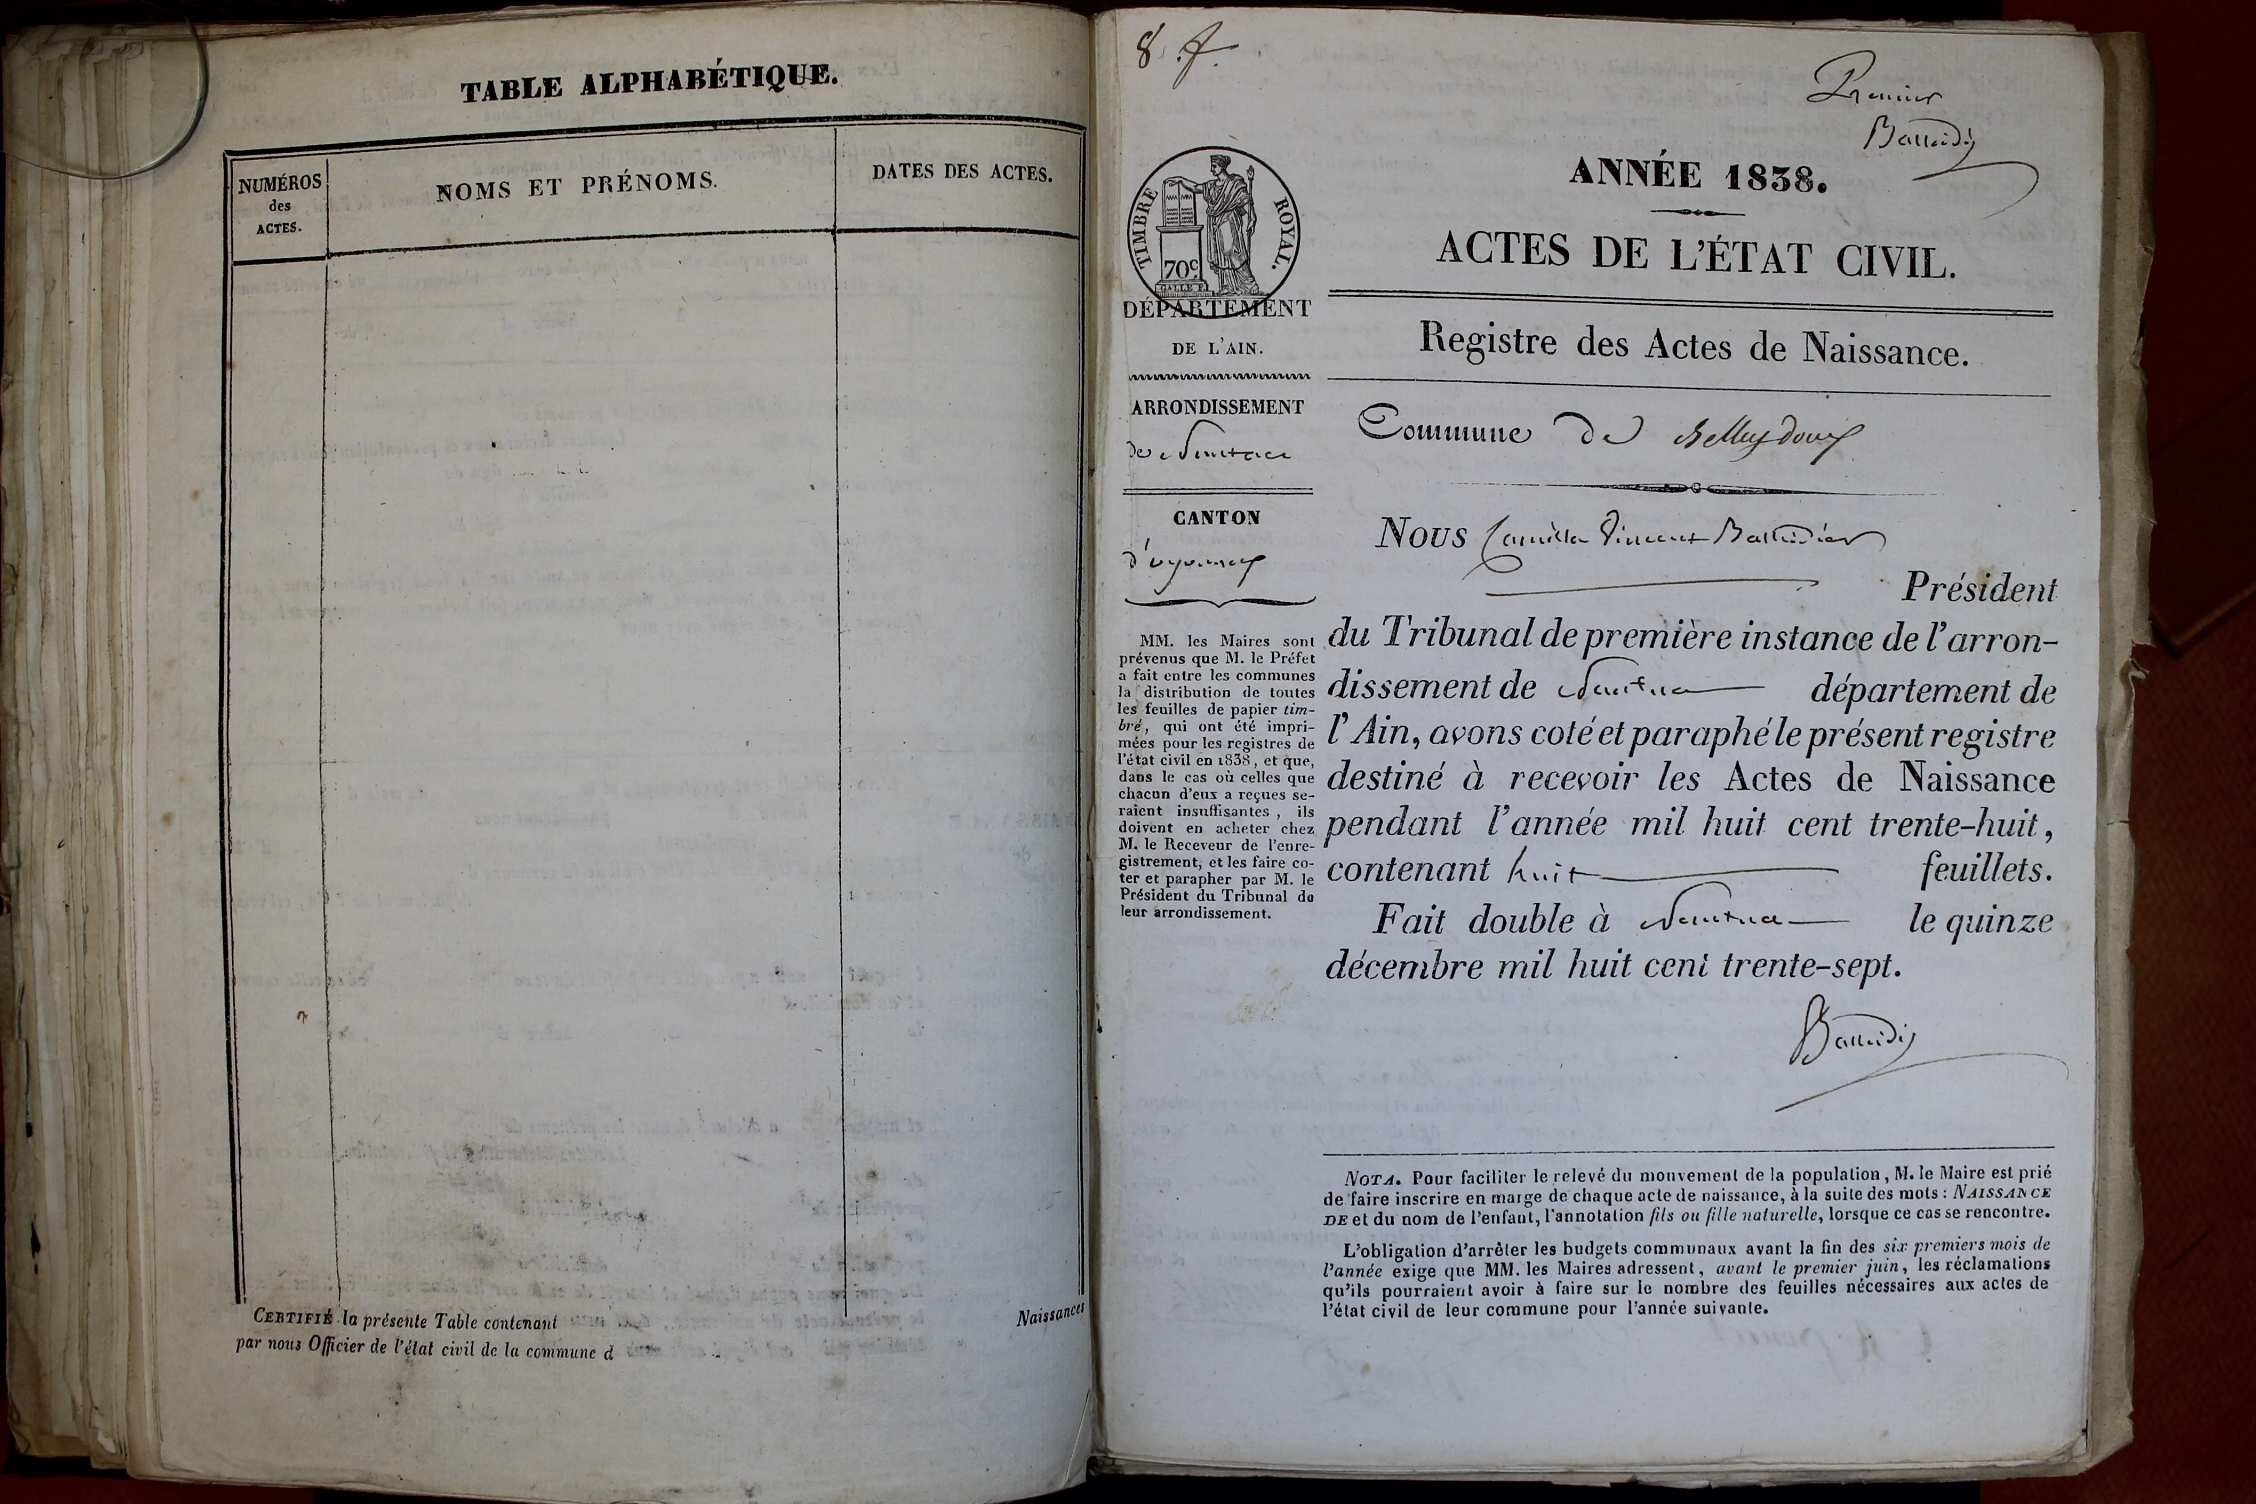 TABLE ALPHABÉTIQUE.
NUMÉROS
des
ACTES.
NOMS ET PRÉNOMS.
DATES DES ACTES.
CERTIFIÉ la présente Table contenant Naissances
par nous Officier de l'état civil de la commune d
8 f.
Premier
TIMBRE ROYAL.
70c
DÉPARTEMENT
DE L'AIN.
ARRONDISSEMENT
de Nantua
CANTON
d'oyonnax
MM. les Maires sont
prévenus que M. le Préfet
a fait entre les communes
la distribution de toutes
les feuilles de papier tim-
bré, qui ont été impri-
mées pour les registres de
l'état civil en 1838, et que,
dans le cas où celles que
chacun d'eux a reçues se-
raient insuffisantes, ils
doivent en acheter chez
M. le Receveur de l'enre-
gistrement, et les faire co-
ter et parapher par M. le
Président du Tribunal de
leur arrondissement.
ANNÉE 1838.
ACTES DE L'ÉTAT CIVIL.
Registre des Actes de Naissance.
Commune de Belleydoux
Nous Camille Vincent
Président
du Tribunal de première instance de l'arron-
dissement de Nantua département de
l'Ain, avons coté et paraphé le présent registre
destiné à recevoir les Actes de Naissance
pendant l'année mil huit cent trente-huit,
contenant huit feuillets.
Fait double à Nantua le quinze
décembre mil huit cent trente-sept.
NOTA. Pour faciliter le relevé du mouvement de la population, M. le Maire est prié
de faire inscrire en marge de chaque acte de naissance, à la suite des mots : NAISSANCE
DE et du nom de l'enfant, l'annotation fils ou fille naturelle, lorsque ce cas se rencontre.
L'obligation d'arrêter les budgets communaux avant la fin des six premiers mois de
l'année exige que MM. les Maires adressent, avant le premier juin, les réclamations
qu'ils pourraient avoir à faire sur le nombre des feuilles nécessaires aux actes de
l'état civil de leur commune pour l'année suivante.